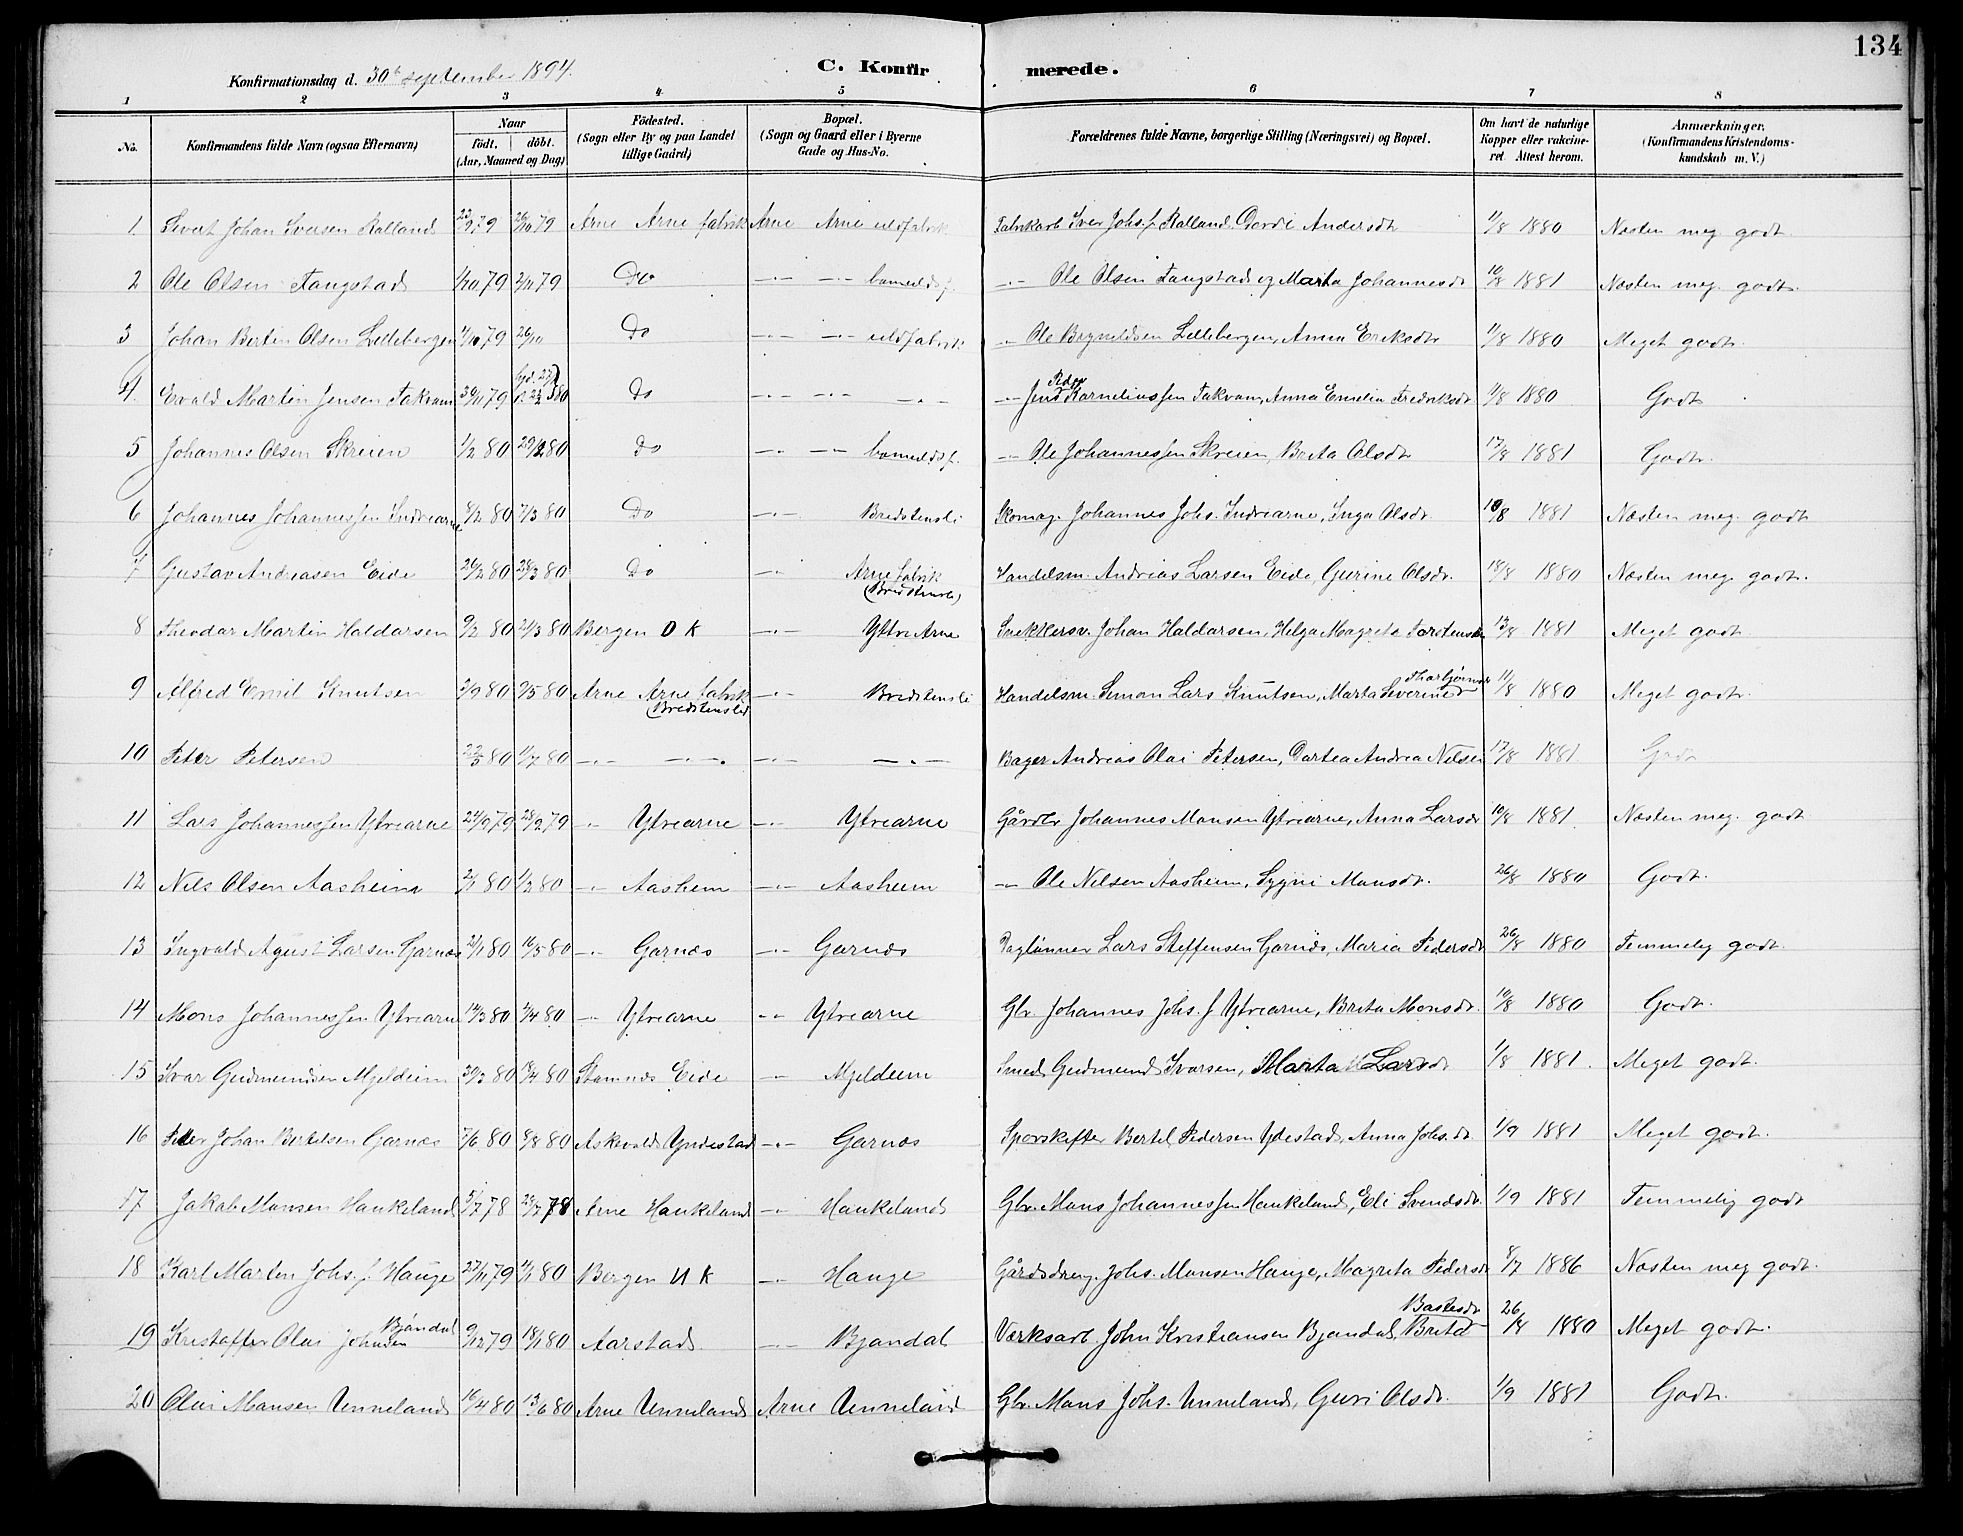 134
Konfirmationsdag d. 30te september 1894.
C. Konfirmerede.
1 2 3 4 5 6 7 8
No. Konfirmandens fulde Navn (ogsaa Efternavn) Naar födt. döbt. (Aar, Maaned og Dag) Födested. (Sogn eller By og paa Landet tillige Gaard) Bopæl. (Sogn og Gaard eller i Byerne Gade og Hus-No. Forældrenes fulde Navne, borgerlige Stilling (Næringsvei) og Bopæl. Om havt de naturlige Kopper eller vakcineret. Attest herom. Anmærkninger. (Konfirmandens Kristendomskundskab m. V.)
1. Sivert Johan Iversen Kalland 22/9 79 26/10 79 Arne Arne fabrik Arne Arne uldfabrik Fabrikarb Iver Johs. f Kalland, Gordi Andersdt 11/8 1880 Næsten meg godt
2 Ole Olsen Fangstad 1/10 79 2/11 79 Do —..— —..— bomuldsf. —..— Ole Olsen Fangstad og Marta Johannesdt 10/8 1881 Næsten meg. godt.
3 Johan Bertin Olsen Lillebergen 11/10 79 26/10 Do —..— —..— uldfabrik —..— Ole Brynildsen Lillebergen, Anna Eriksdt 11/8 1880 Meget godt.
4. Ervald Martin Jensen Takvam 30/11 79 Do —..— —..— —..— —..— Jens Peder Korneliussen Takvam, Anna Emilia Fredriksdt 11/8 1880 Godt
5 Johannes Olsen Skreien 1/2 80 29/2 80 Do —..— —..— bomuldsf. —..— Ole Johannessen Skreien, Brita Olsdt 17/8 1881 Godt.
6 Johannes Johannessen Indrearne 8/2 80 7/3 80 Do —..— Bredstensli Skomag. Johannes Johs. Indrearne, Inga Olsdt. 10/8 1881 Næsten meg. godt
7 Gustav Andreasen Eide 26/2 80 28/3 80 Do —..— Arne fabrik (Bredstensli) Handelsm. Andreas Larsen Eide, Gurine Olsdt. 18/8 1880 Næsten meg. godt.
8 Theodor Martin Haldorsen 9/2 80 21/3 80 Bergen D K —..— Ytre Arne Snekkersv. Johan Haldorsen, Helga Magreta Torstensdtr 13/8 1881 Meget godt
9 Alfred Emil Knutsen 2/9 80 9/5 80 Arne Arne fabrik (Bredstensli) —..— Bredstensli Handelsm. Simon Lars Knutsen, Marta Severine Thorbjørnsdt 11/8 1880 Meget godt
10 Peter Petersen 22/5 80 11/7 80 —..— —..— —..— —..— Bager Andreas Olai Petersen, Dortea Andrea Nilsen 17/8 1881 Godt
11 Lars Johannessen Ytrearne 24/9 79 28/9 79 —..— Ytrearne —..— Ytrearne Gårdbr Johannes Monsen Ytrearne, Anna Larsdt 10/8 1881 Næsten meg. godt
12 Nils Olsen Aasheim 2/1 80 1/2 80 —..— Aasheim —..— Aasheim —..— Ole Nilsen Aasheim, Sygni Monsdt. 26/8 1880 Godt.
13 Ingvald Agust Larsen Garnæs 21/1 80 16/5 80 —..— Garnæs —..— Garnæs Daglønner Lars Steffensen Garnæs, Maria Pedersdt 26/8 1880 Temmelig godt.
14 Mons Johannessen Ytrearne 14/3 80 4/4 80 —..— Ytrearne —..— Ytrearne Gbr. Johannes Johs. f Ytrearne, Brita Monsdt. 10/8 1880 Godt.
15 Ivar Gudmundsen Mjeldeim 30/3 80 18/4 80 Stamnes Eide —..— Mjeldeim Smed. Gudmund Ivarsen, Marta Larsdt 1/8 1881. Meget godt.
16 Peter Johan Bertelsen Garnæs 7/6 80 8/8 80 Askevold Yndestad —..— Garnæs Sporskifter Bertel Pedersen Ydestad, Anna Johs.dt. 1/9 1881 Meget godt.
17 Jakob Monsen Haukeland 5/7 78 28/7 78 Arne Haukeland —..— Haukeland Gbr. Mons Johannessen Haukeland, Eli Svendsdt 1/9 1881 Temmelig godt
18 Karl Martin Johs. f. Hauge 27/11 79 1/1 80 Bergen N K —..— Hauge Gårdsdreng. Johs. Monsen Hauge, Magreta Pedersdt 8/7 1886 Næsten meg godt.
19 Kristoffer Olai Johnsen Bjøndal 9/12 79 18/1 80 Aarstad —..— Bjøndal Værksarb. John Kristiansen Bjøndal, Brita Bastesdt 26/8 1880 Meget godt.
20 Olai Monsen Unneland 16/4 80 13/6 80 Arne Unneland Arne Unneland Gbr. Mons Johs. Unneland, Guri Olsdt. 1/9 1881 Godt.